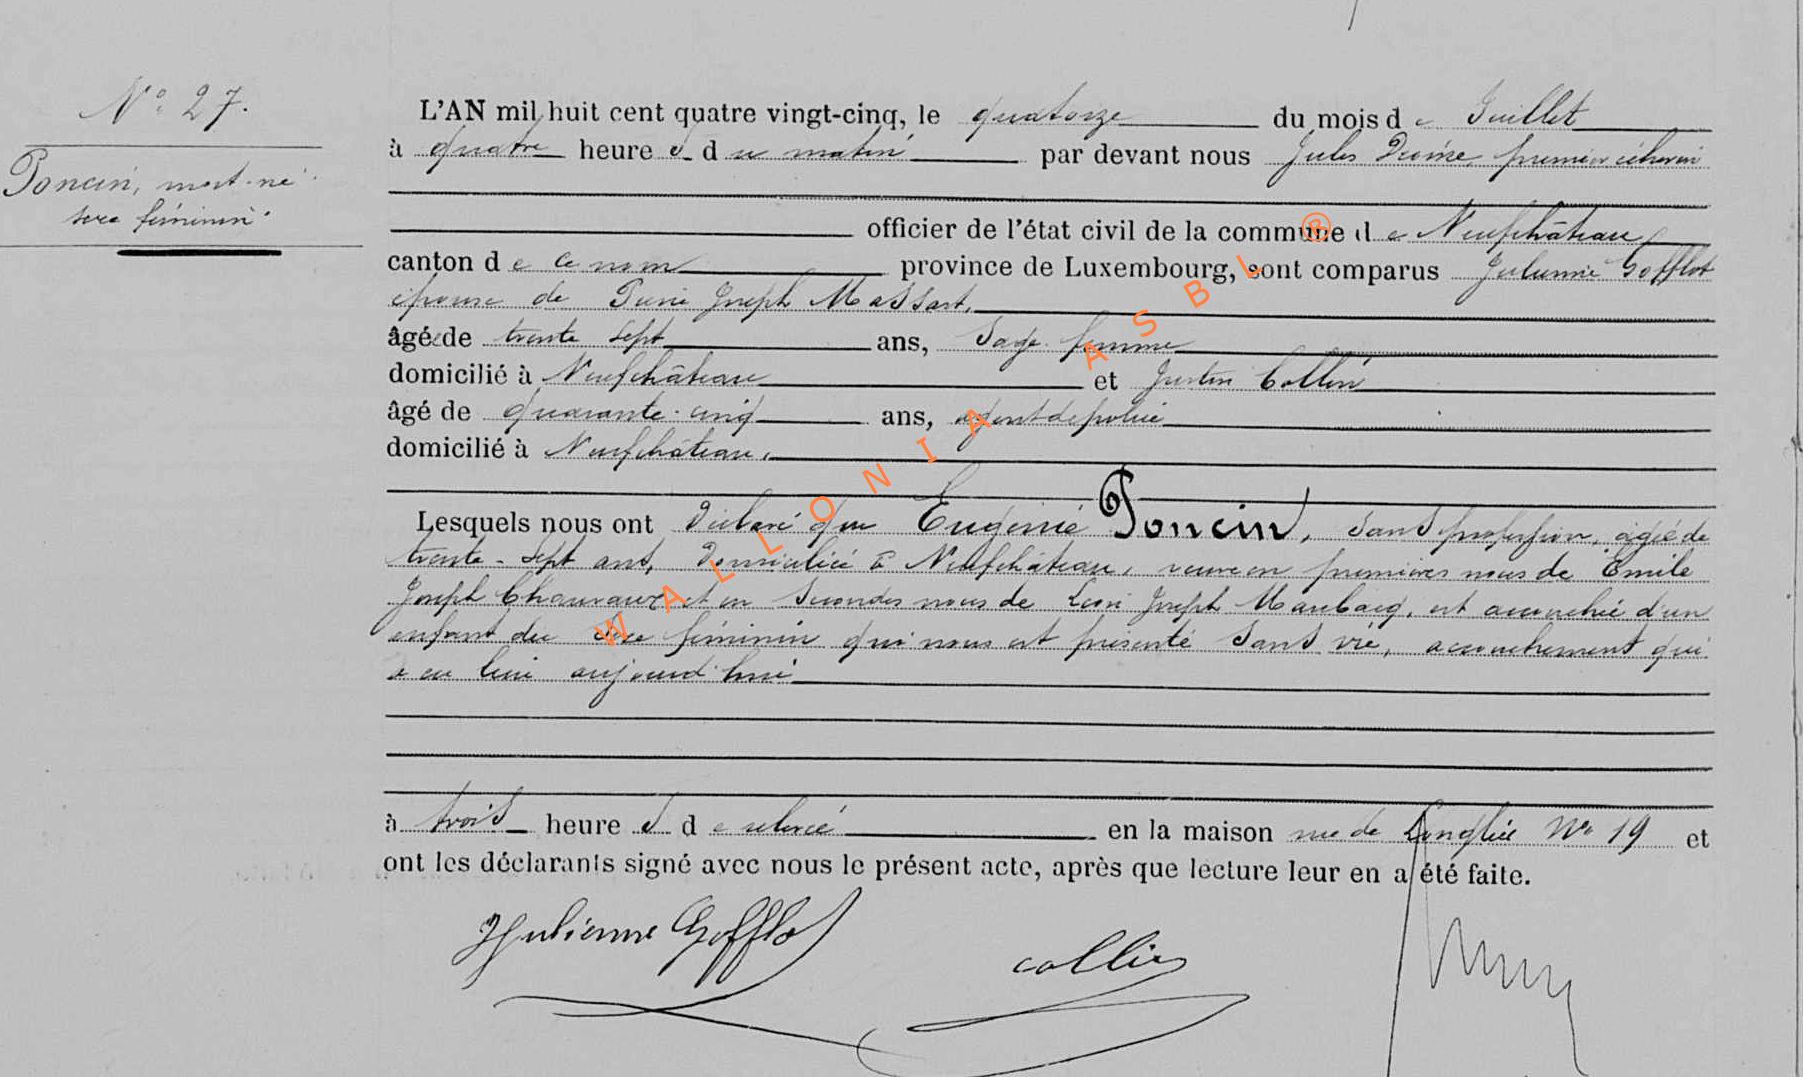 N° 27.
Poncin, mort-né
sexe féminin.
L'AN mil huit cent quatre vingt-cinq, le quatorze du mois de Juillet
à quatre heures du matin par devant nous Jules premier échevin
officier de l'état civil de la commune de Neufchâteau
canton de ce nom province de Luxembourg, sont comparus Julienne Gofflot
épouse de Pierre Joseph Massart,
âgée de trente sept ans, Sage-femme
domicilié à Neufchâteau et Justin Collin
âgé de quarante-cinq ans, agent de police
domicilié à Neufchâteau,
Lesquels nous ont déclaré que Eugénie Poncin, sans profession, âgée de
trente-sept ans, domiciliée à Neufchâteau, veuve en premières noces de Emile
Joseph Chauvaux et en secondes noces de Léon Joseph est accouchée d'un
enfant du sexe féminin qui nous est présenté sans vie, accouchement qui
a eu lieu aujourd'hui
à trois heures de relevée en la maison rue de Longlier N° 19 et
ont les déclarants signé avec nous le présent acte, après que lecture leur en a été faite.
Julienne Gofflot
Collin
WALLONIA ASBL ®